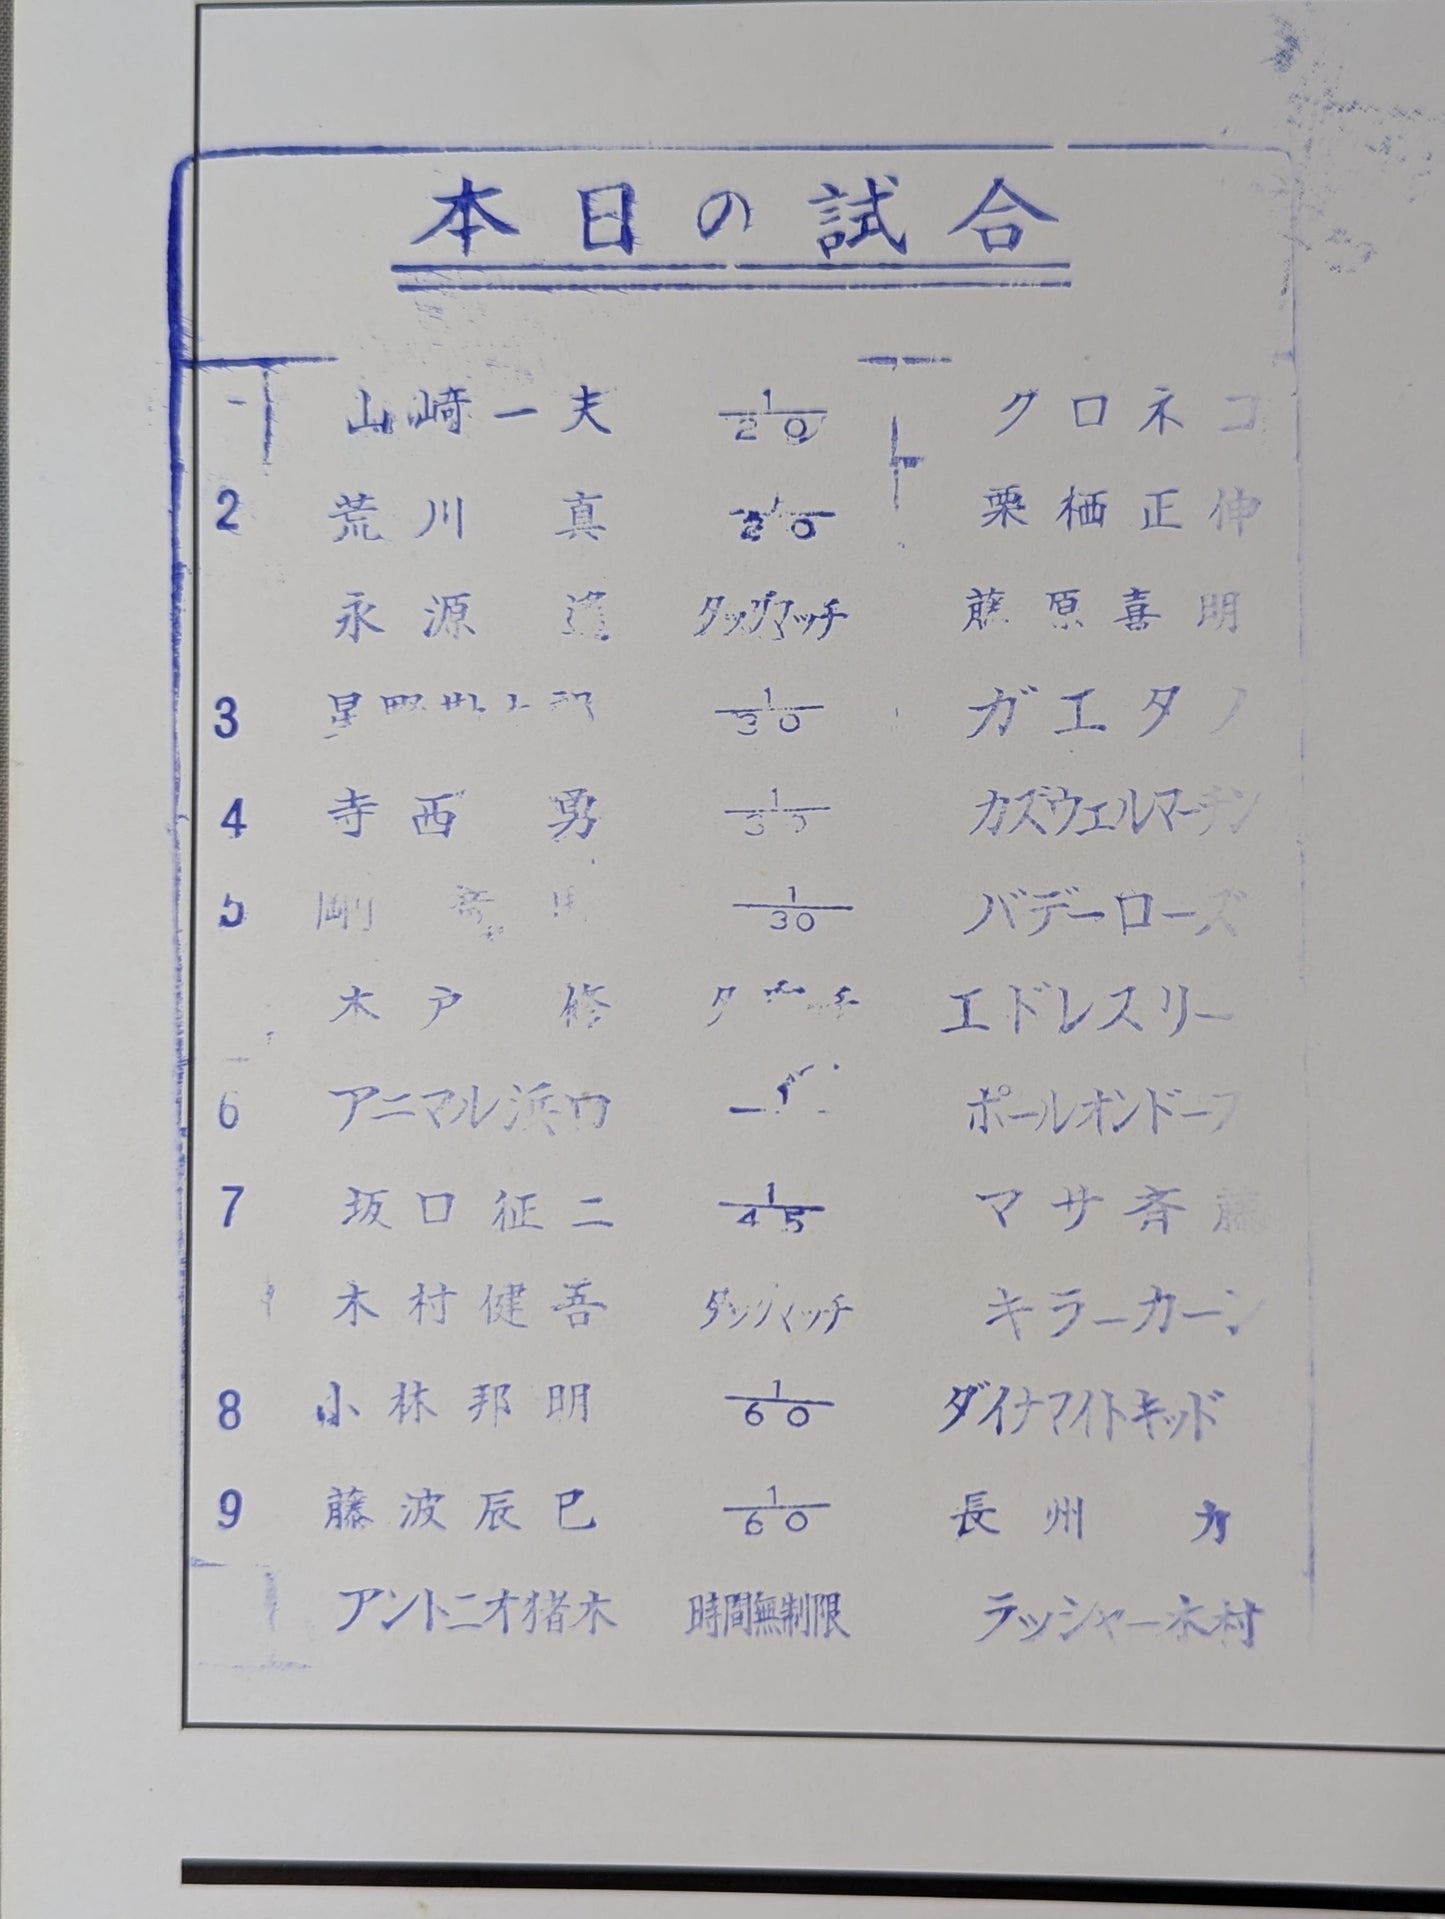 本日の試合
山崎一夫 1/20 クロネコ
2 荒川 真 1/20 栗栖正伸
永源 遙 タッグマッチ 藤原喜明
3 星野勘太郎 1/30 ガエタノ
4 寺西 勇 1/30 カズウェルマーチン
5 剛 竜馬 1/30 バデーローズ
木戸 修 エドレスリー
6 アニマル浜口 ポールオンドーフ
7 坂口征二 1/45 マサ斉藤
木村健吾 タッグマッチ キラーカーン
8 小林邦明 1/60 ダイナマイトキッド
9 藤波辰巳 1/60 長州 力
アントニオ猪木 時間無制限 ラッシャー木村